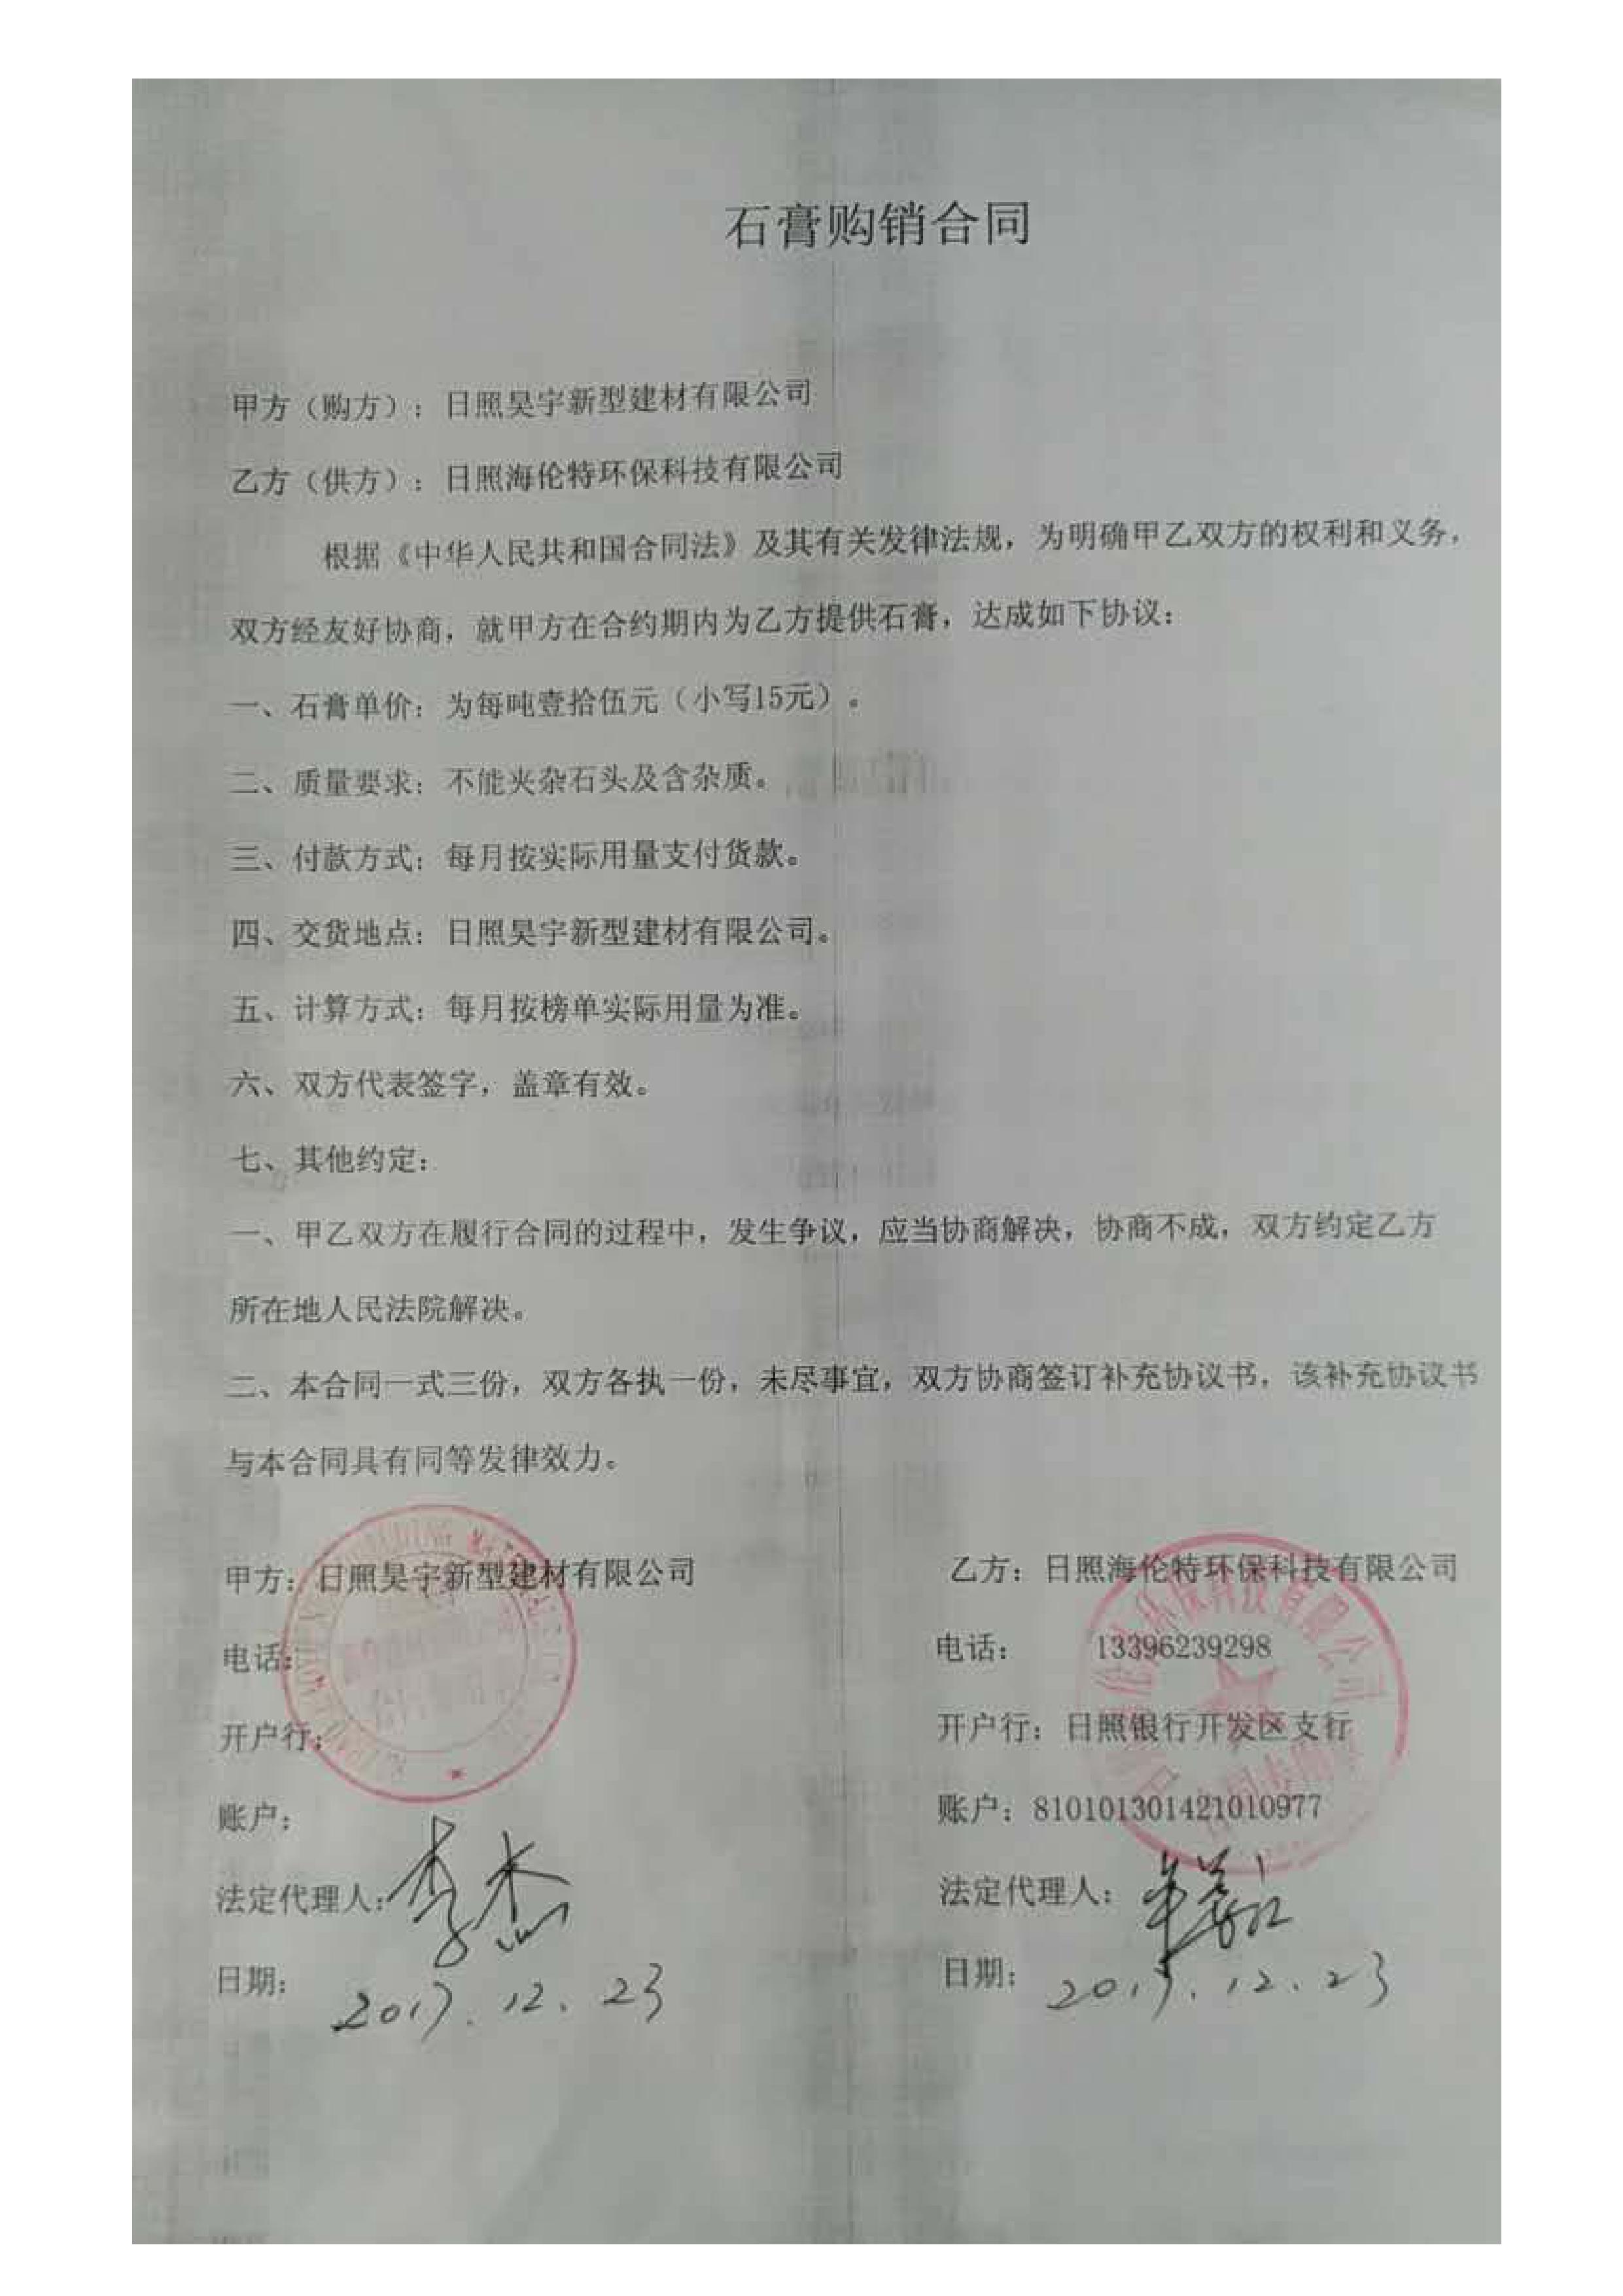 石膏购销合同
甲方（购方）：日照昊宇新型建材有限公司
乙方（供方）：日照海伦特环保科技有限公司
根据《中华人民共和国合同法》及其有关发律法规，为明确甲乙双方的权利和义务，
双方经友好协商，就甲方在合约期内为乙方提供石膏，达成如下协议：
一、石膏单价：为每吨壹拾伍元（小写15元）。
二、质量要求：不能夹杂石头及含杂质。
三、付款方式：每月按实际用量支付货款。
四、交货地点：日照昊宇新型建材有限公司。
五、计算方式：每月按榜单实际用量为准。
六、双方代表签字，盖章有效。
七、其他约定：
一、甲乙双方在履行合同的过程中，发生争议，应当协商解决，协商不成，双方约定乙方
所在地人民法院解决。
二、本合同一式三份，双方各执一份，未尽事宜，双方协商签订补充协议书，该补充协议书
与本合同具有同等发律效力。
甲方：日照昊宇新型建材有限公司
电话：
开户行：
账户：
法定代理人：李杰
日期：2017.12.23
乙方：日照海伦特环保科技有限公司
电话： 13396239298
开户行：日照银行开发区支行
账户：810101301421010977
法定代理人：
日期：2017.12.23